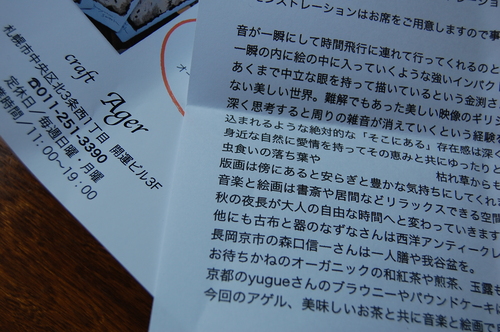 craft Ager
札幌市中央区北3条西1丁目 開運ビル3F
☎011-251-3390
定休日／毎週日曜・月曜
業時間／11:00-19:00
ンストレーションはお席をご用意しますので事
音が一瞬にして時間飛行に連れて行ってくれるのと
一瞬の内に絵の中に入っていくような強いインパク
あくまで中立な眼を持って描いているという金渕さ
ない美しい世界。難解でもあった美しい映像のギリシ
深く思考すると周りの雑音が消えていくという経験を
込まれるような絶対的な「そこにある」存在感は深く
身近な自然に愛情を持ってその恵みと共にゆったりと
虫食いの落ち葉や 枯れ草から
版画は傍にあると安らぎと豊かな気持ちにしてくれ
音楽と絵画は書斎や居間などリラックスできる空間
秋の夜長が大人の自由な時間へと変わっていきます
他にも古布と器のなずなさんは西洋アンティークレ
長岡京市の森口信一さんは一人膳や我谷盆を。
お待ちかねのオーガニックの和紅茶や煎茶、玉露も
京都のyugueさんのブラウニーやパウンドケーキに
今回のアゲル、美味しいお茶と共に音楽と絵画で